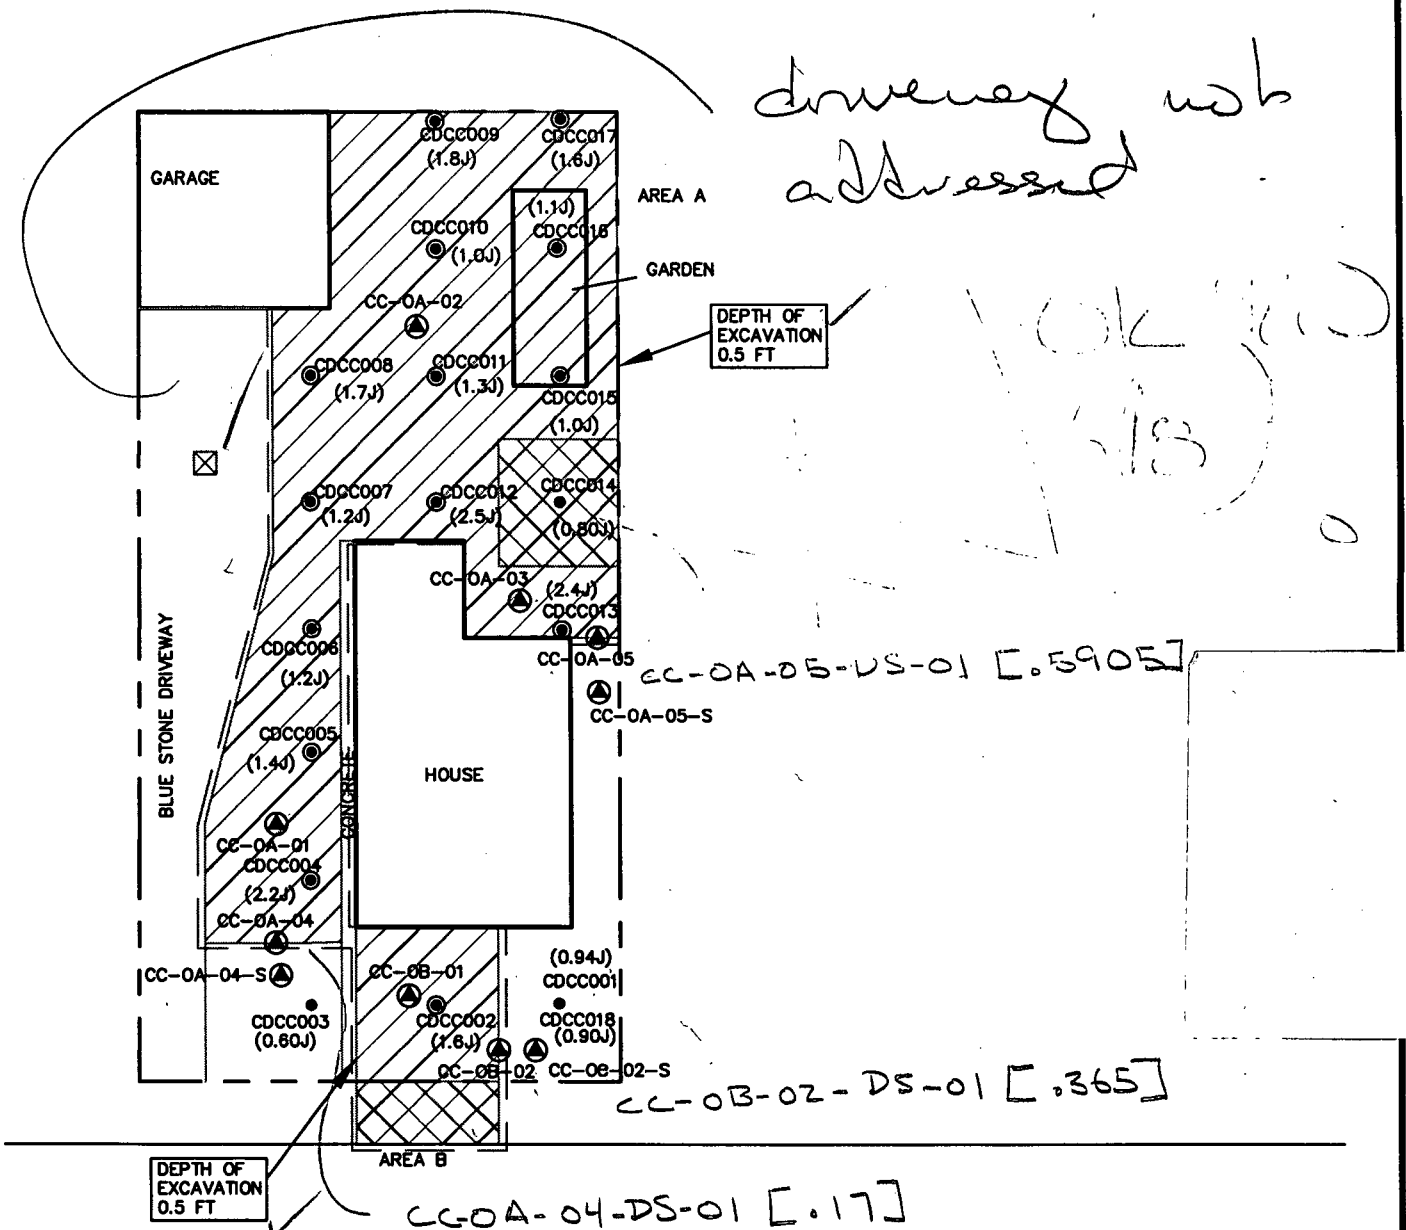 driveway not
addressed
CDCC009
(1.8J)
CDCC017
(1.6J)
GARAGE
AREA A
(1.1J)
CDCC010
(1.0J)
CDCC016
GARDEN
CC-OA-02
DEPTH OF
EXCAVATION
0.5 FT
CDCC008
(1.7J)
CDCC011
(1.3J)
CDCC015
(1.0J)
CDCC007
(1.2J)
CDCC012
(2.5J)
CDCC014
(0.80J)
CC-OA-03
(2.4J)
CDCC013
CDCC006
(1.2J)
CC-OA-05
CC-OA-05-US-01 [.5905]
CC-OA-05-S
BLUE STONE DRIVEWAY
CDCC005
(1.4J)
CONCRETE
HOUSE
CC-OA-01
CDCC004
(2.2J)
CC-OA-04
CC-OA-04-S
CC-OB-01
(0.94J)
CDCC001
CDCC003
(0.60J)
CDCC002
(1.6J)
CDCC018
(0.90J)
CC-OB-02
CC-OB-02-S
CC-OB-02-DS-01 [.365]
AREA B
DEPTH OF
EXCAVATION
0.5 FT
CC-OA-04-DS-01 [.17]